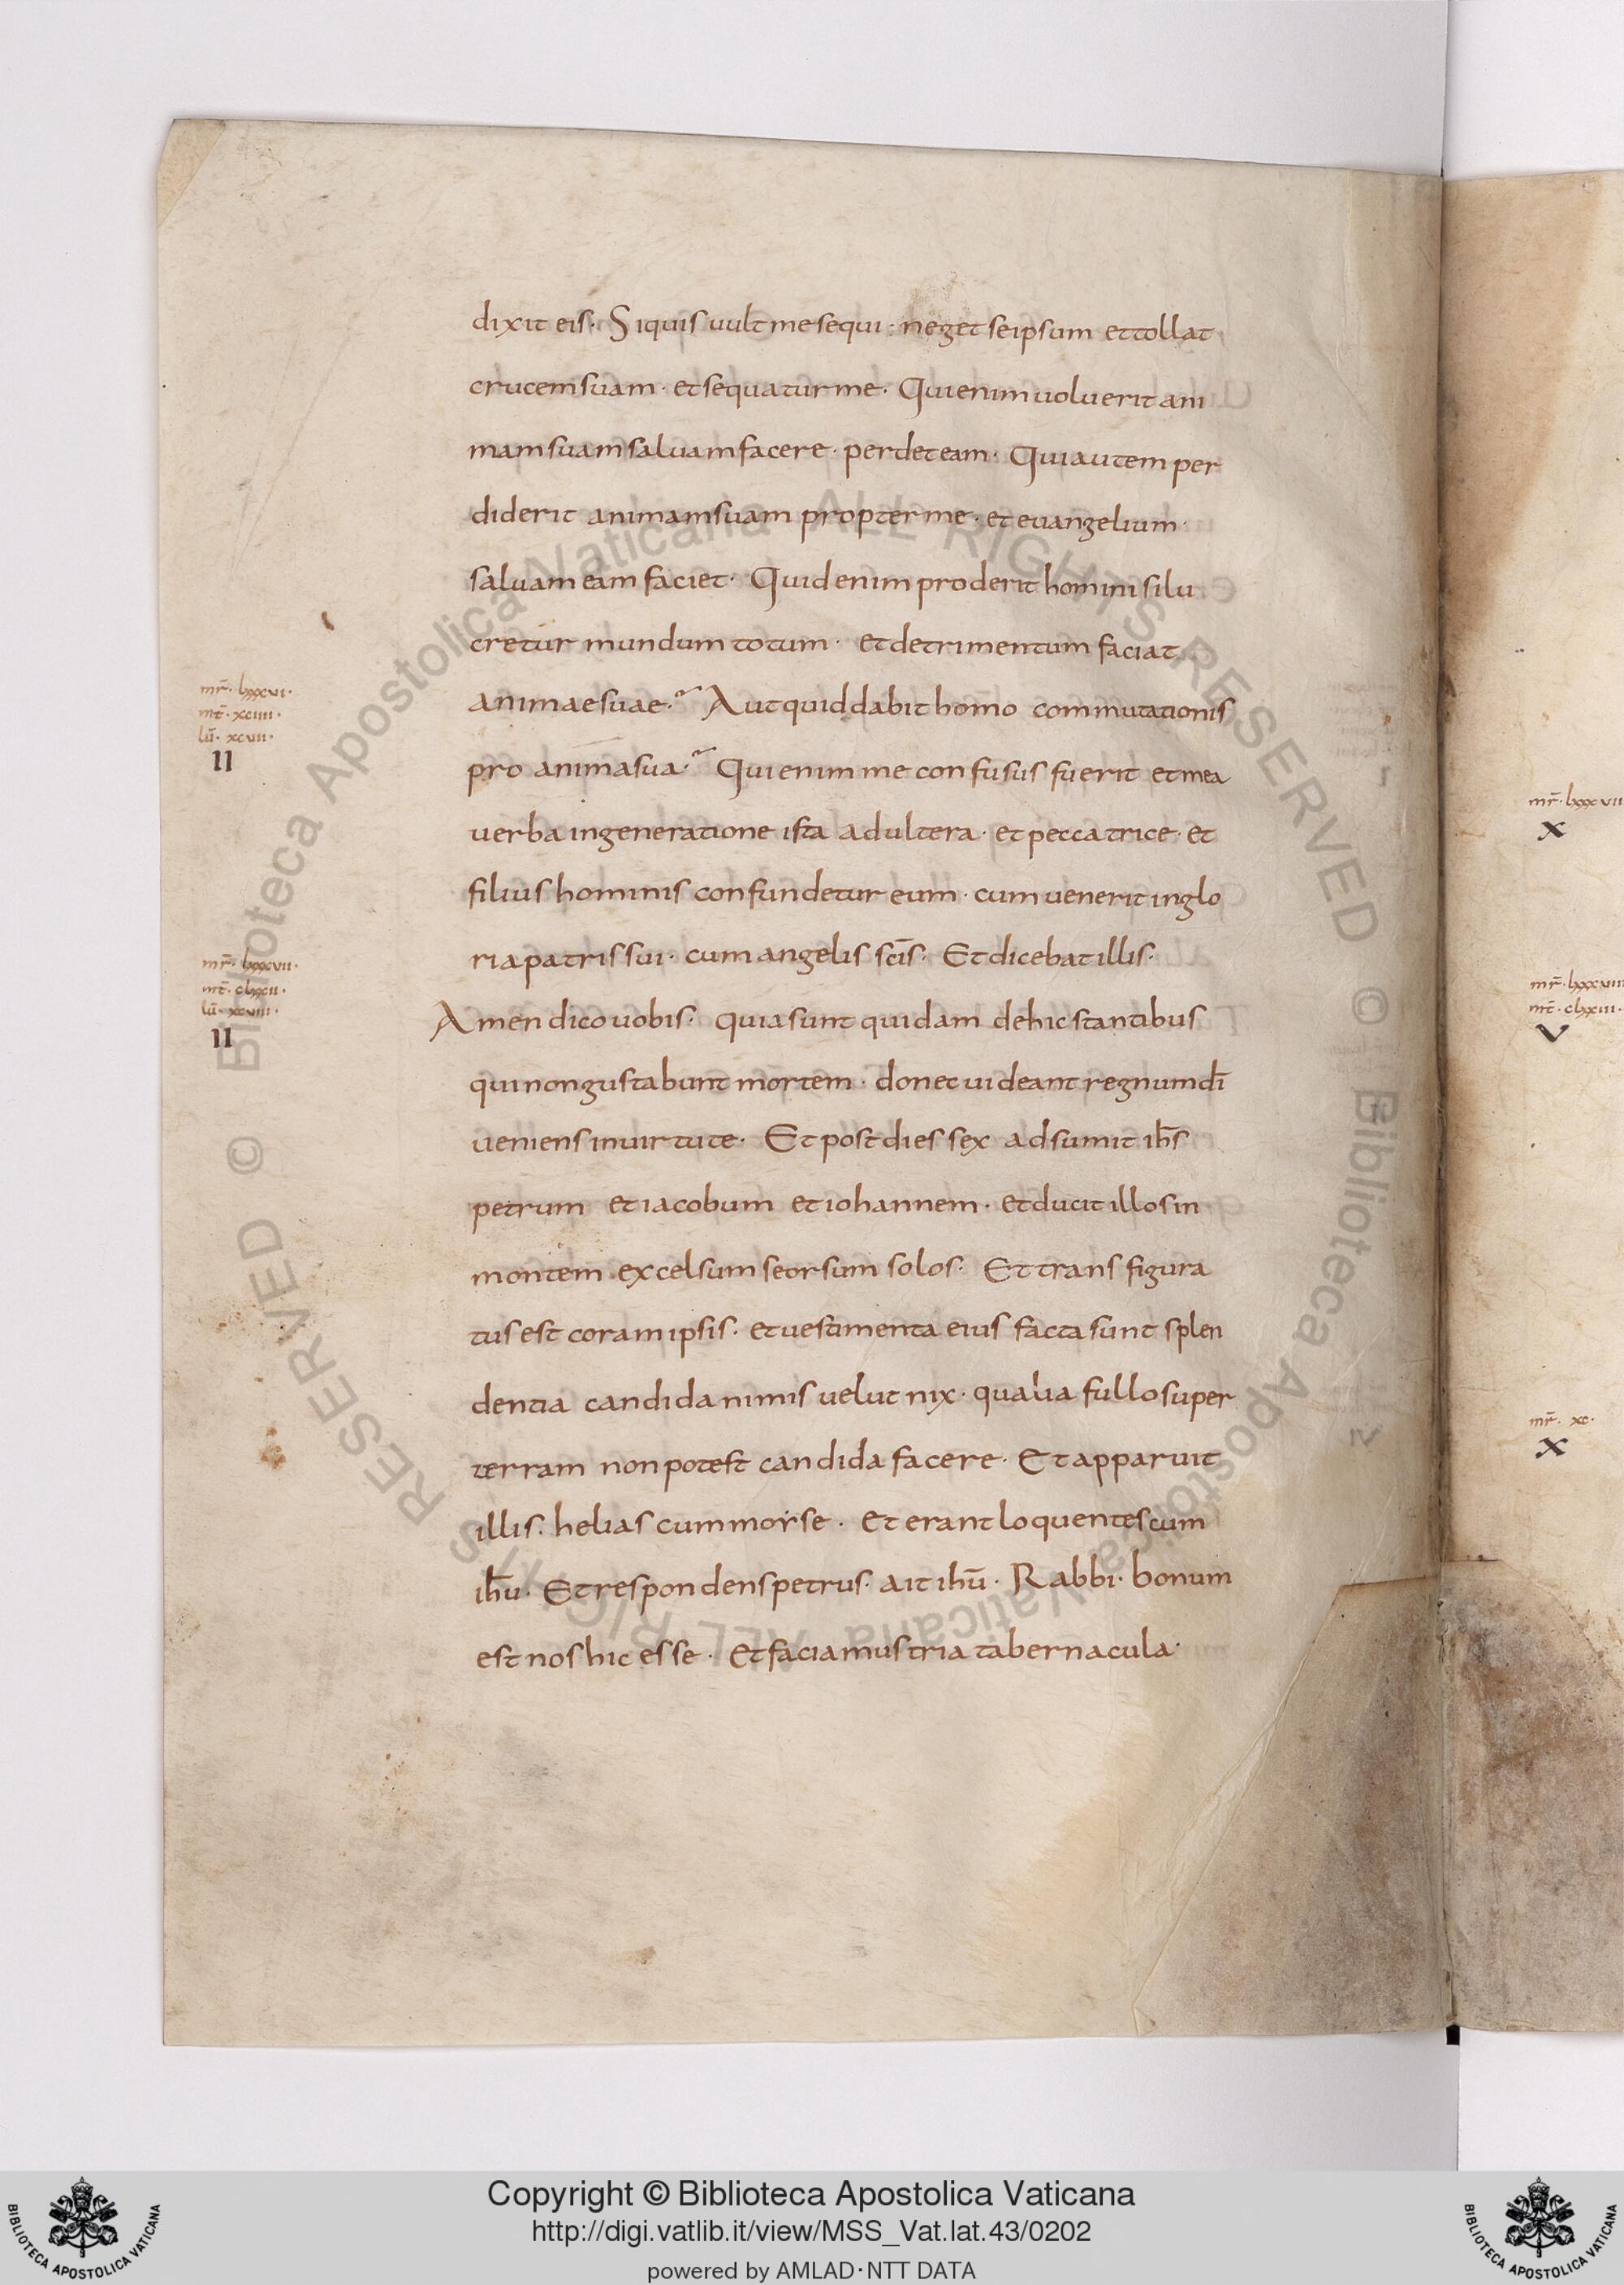 dixit eis· Siquis uult mesequi· neget seipsum ettollat
crucemsuam· etsequaturme· Quienimuoluerit ani
mamsuamsaluamfacere· perdeteam· Quiautem per
diderit animamsuam propterme· et euangelium·
saluam eam faciet· Quidenim proderit homini silu
cretur mundum totum· etdetrimentum faciat
animaesuae· Autquiddabit homo commutationis
pro animasua· Quienim me confusus fuerit etmea
uerba ingeneratione ista adultera· et peccatrice· et
filius hominis confundetur eum· cum uenerit inglo
riapatris sui· cum angelis scīs· Etdicebat illis·
Amen dico uobis· quiasunt quidam dehic stantibus
qui nongustabunt mortem· donec uideant regnum dī
ueniens inuirtute· Et post dies sex adsumit ihs̄
petrum et iacobum et iohannem· etducit illos in
montem excelsum seorsum solos· Et transfigura
tus est coram ipsis· etuestimenta eius facta sunt splen
dentia candida nimis uelut nix· qualia fullo super
terram non potest candida facere· Et apparuit
illis· helias cum moyse· Et erant loquentes cum
ihū· Et respondens petrus· ait ihū· Rabbi· bonum
est nos hic esse· Et faciamus tria tabernacula·
mr̄· lxxxvi·
mt̄· xciiii·
lū· xcvii·
II
mr̄· lxxxvii·
mt̄· clxxii·
lū· xcviii·
II
mr̄· lxxxvii
X
mr̄· lxxxviii
mt̄· clxxiii·
V
mr̄· xc·
X
Biblioteca Apostolica Vaticana ALL RIGHTS RESERVED ©
Biblioteca Apostolica Vaticana ALL RIGHTS RESERVED ©
Copyright © Biblioteca Apostolica Vaticana
http://digi.vatlib.it/view/MSS_Vat.lat.43/0202
powered by AMLAD·NTT DATA
BIBLIOTECA APOSTOLICA VATICANA
BIBLIOTECA APOSTOLICA VATICANA